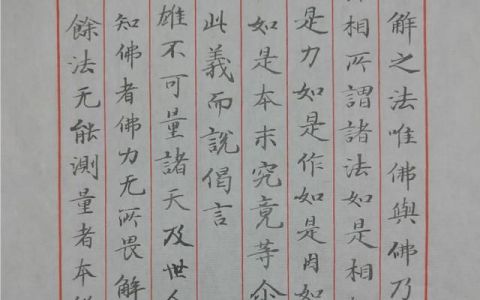 解之法唯佛與佛乃
相所謂諸法如是相
是力如是作如是因如
如是本末究竟等尒
此義而說偈言
雄不可量諸天及世人
知佛者佛力无所畏解
餘法无能測量者本